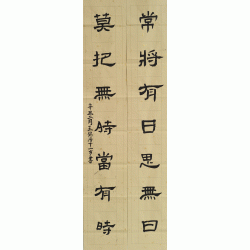 常將有日思無日
莫把無時當有時